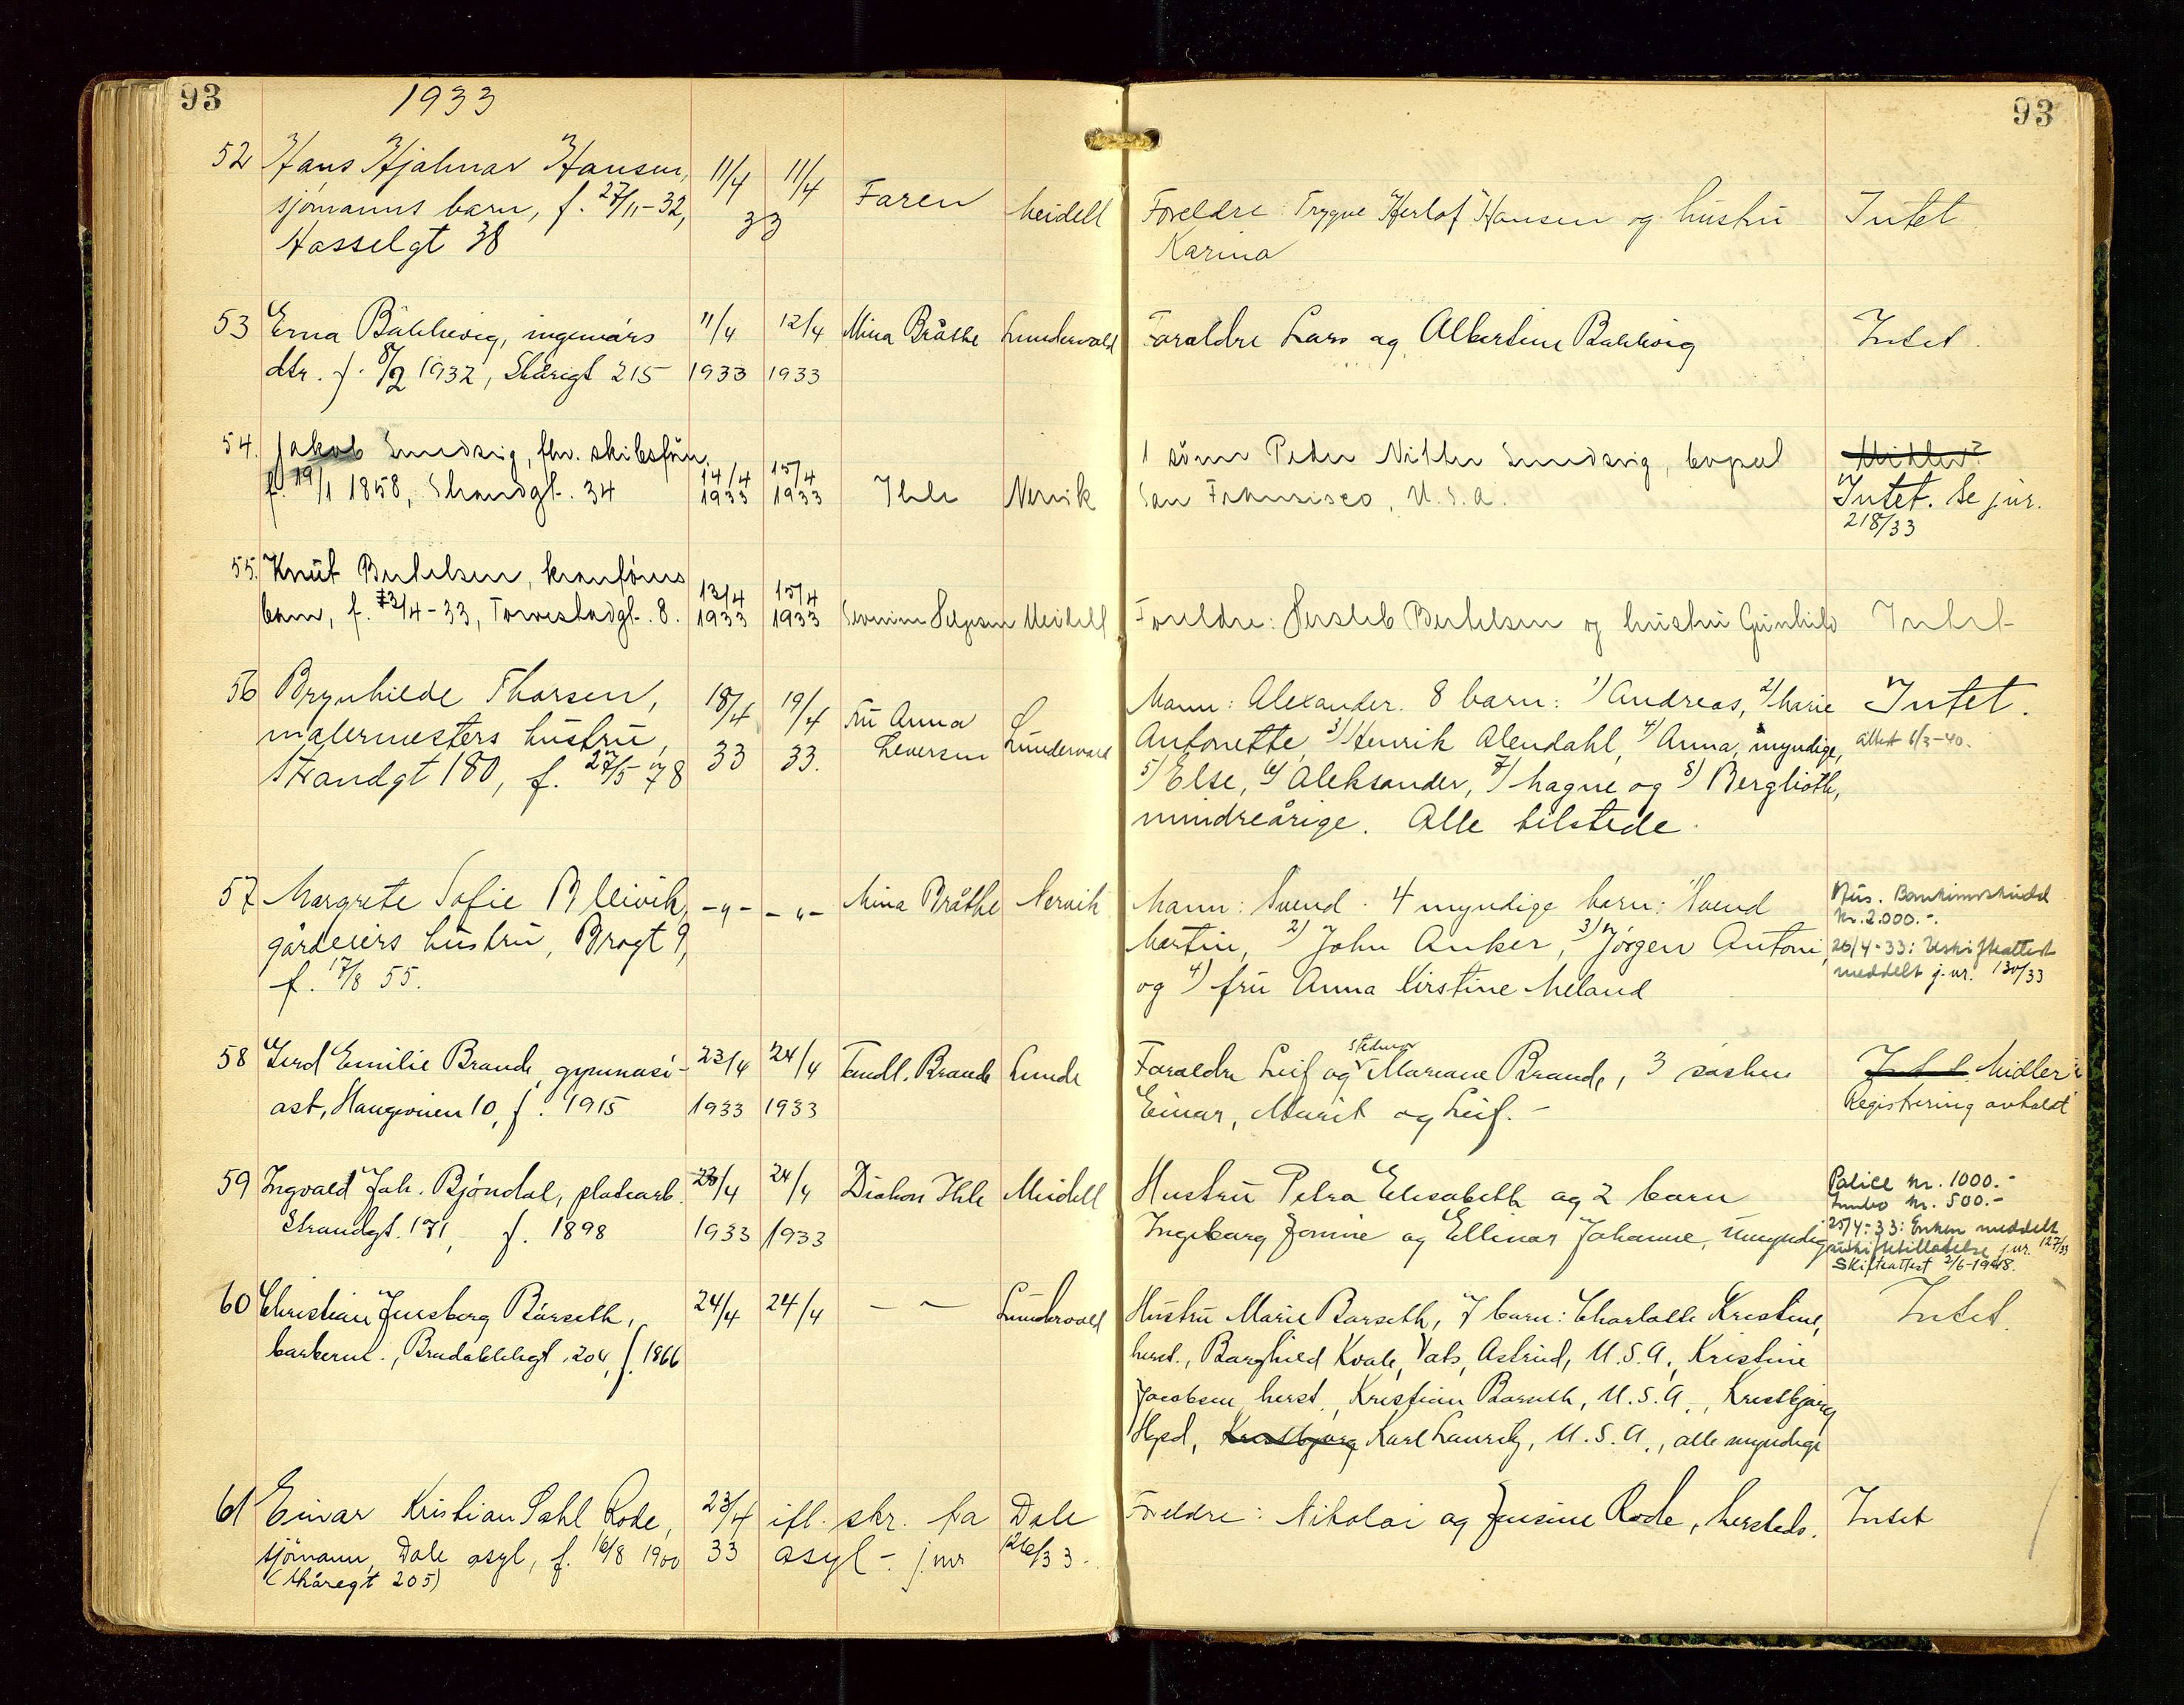 93
1933
93
52 Hans Hjalmar Hansen, 11/4 11/4 Faren Meidell Foreldre: Trygve Herlof Hansen og hustru Intet
sjömanns barn, f. 27/11-32, 33 Karina
Hasselgt 38
53 Erna Bakkevig, ingeniörs 11/4 12/4 Mina Bråthe Lundervold Foraldre Lars og Albertine Bakkevig Intet.
dtr. f. 8/2 1932, Skåregt 215 1933 1933
54. Jakob Sundsvig, fhv. skibsför. 14/4 15/4 Ihle Nervik 1 sönn Peder Sundsvig, bopæl
f. 19/1 1858, Strandgt. 34 1933 1933 San Fransisco, U.S.A. Intet. Se j.nr.
218/33
55. Knut Bertelsen, kranförers 13/4 15/4 Meidell Foreldre: Hersleb Bertelsen og hustru Gunhild Intet
barn, f. 3/4-33, Torvestadgt. 8. 1933 1933
56 Brynhilde Thorsen, 18/4 19/4 Fru Anna Lundervold Mann: Alexander. 8 barn: 1) Andreas, 2) Marie Intet.
malermesters hustru, 33 33. Leversen Antonette, 3) Henrik Alendahl, 4) Anna, myndige, attest 6/3-40.
Strandgt 180, f. 27/5 78 5) Else, 6) Aleksander, 7) Magne og 8) Berglioth,
mindreårige. Alle tilstede.
57 Margrete Sofie Bleivik, -"- -"- Mina Bråthe Nervik Mann: Svend. 4 myndige barn: 1) Svend Hus. Bankinnskudd
gårdeiers hustru, Brogt 9, Martin, 2) John Anker, 3) Jörgen Antoni, kr. 2.000.-
f. 17/8 55. og 4) fru Anna Kirstine Meland 26/4-33: Uskifteattest
meddelt j.nr. 130/33
58 Gerd Emilie Brande, gymnasi- 23/4 24/4 Tandl. Brande Lunde Foraldre Leif og stedmor Mariane Brande, 3 søsken Intet Midler
ast, Haugevnien 10, f. 1915 1933 1933 Einar, Marit og Leif.- Registrering avholdt
59 Ingvald Joh. Bjöndal, platearb. 23/4 24/4 Diakon Ihle Meidell Hustru Petra Elisabeth og 2 barn Police kr. 1000.-
Strandgt. 171, f. 1898 1933 1933 Ingeborg Jonine og Ellinor Johanne, umyndige Innbo kr. 500.-
25/4-33: Enken meddelt
uskiftetilladelse j.nr. 127/33
Skifteattest 2/6-1948.
60 Christian Jensberg Bårseth, 24/4 24/4 - - Lundervold Hustru Marie Barseth, 7 barn: Charlotte Kristine, Intet.
barberm., Breidablikgt. 204, f. 1866 herst., Borghild Kvale, Vats, Astrid, U.S.A., Kristine
Jacobsen herst., Kristian Barseth, U.S.A., Kristbjørg
Kristbjørg Karl Lauritz, U.S.A., alle myndige
61 Einar Kristian Sahl Rode, 23/4 ifl. skr. fra Dale Foreldre: Nikolai og Jensine Rode, hersteds. Intet
sjömann, Dale asyl, f. 16/8 1900 33 asyl - j.nr 126/33.
(Skåregt 205)